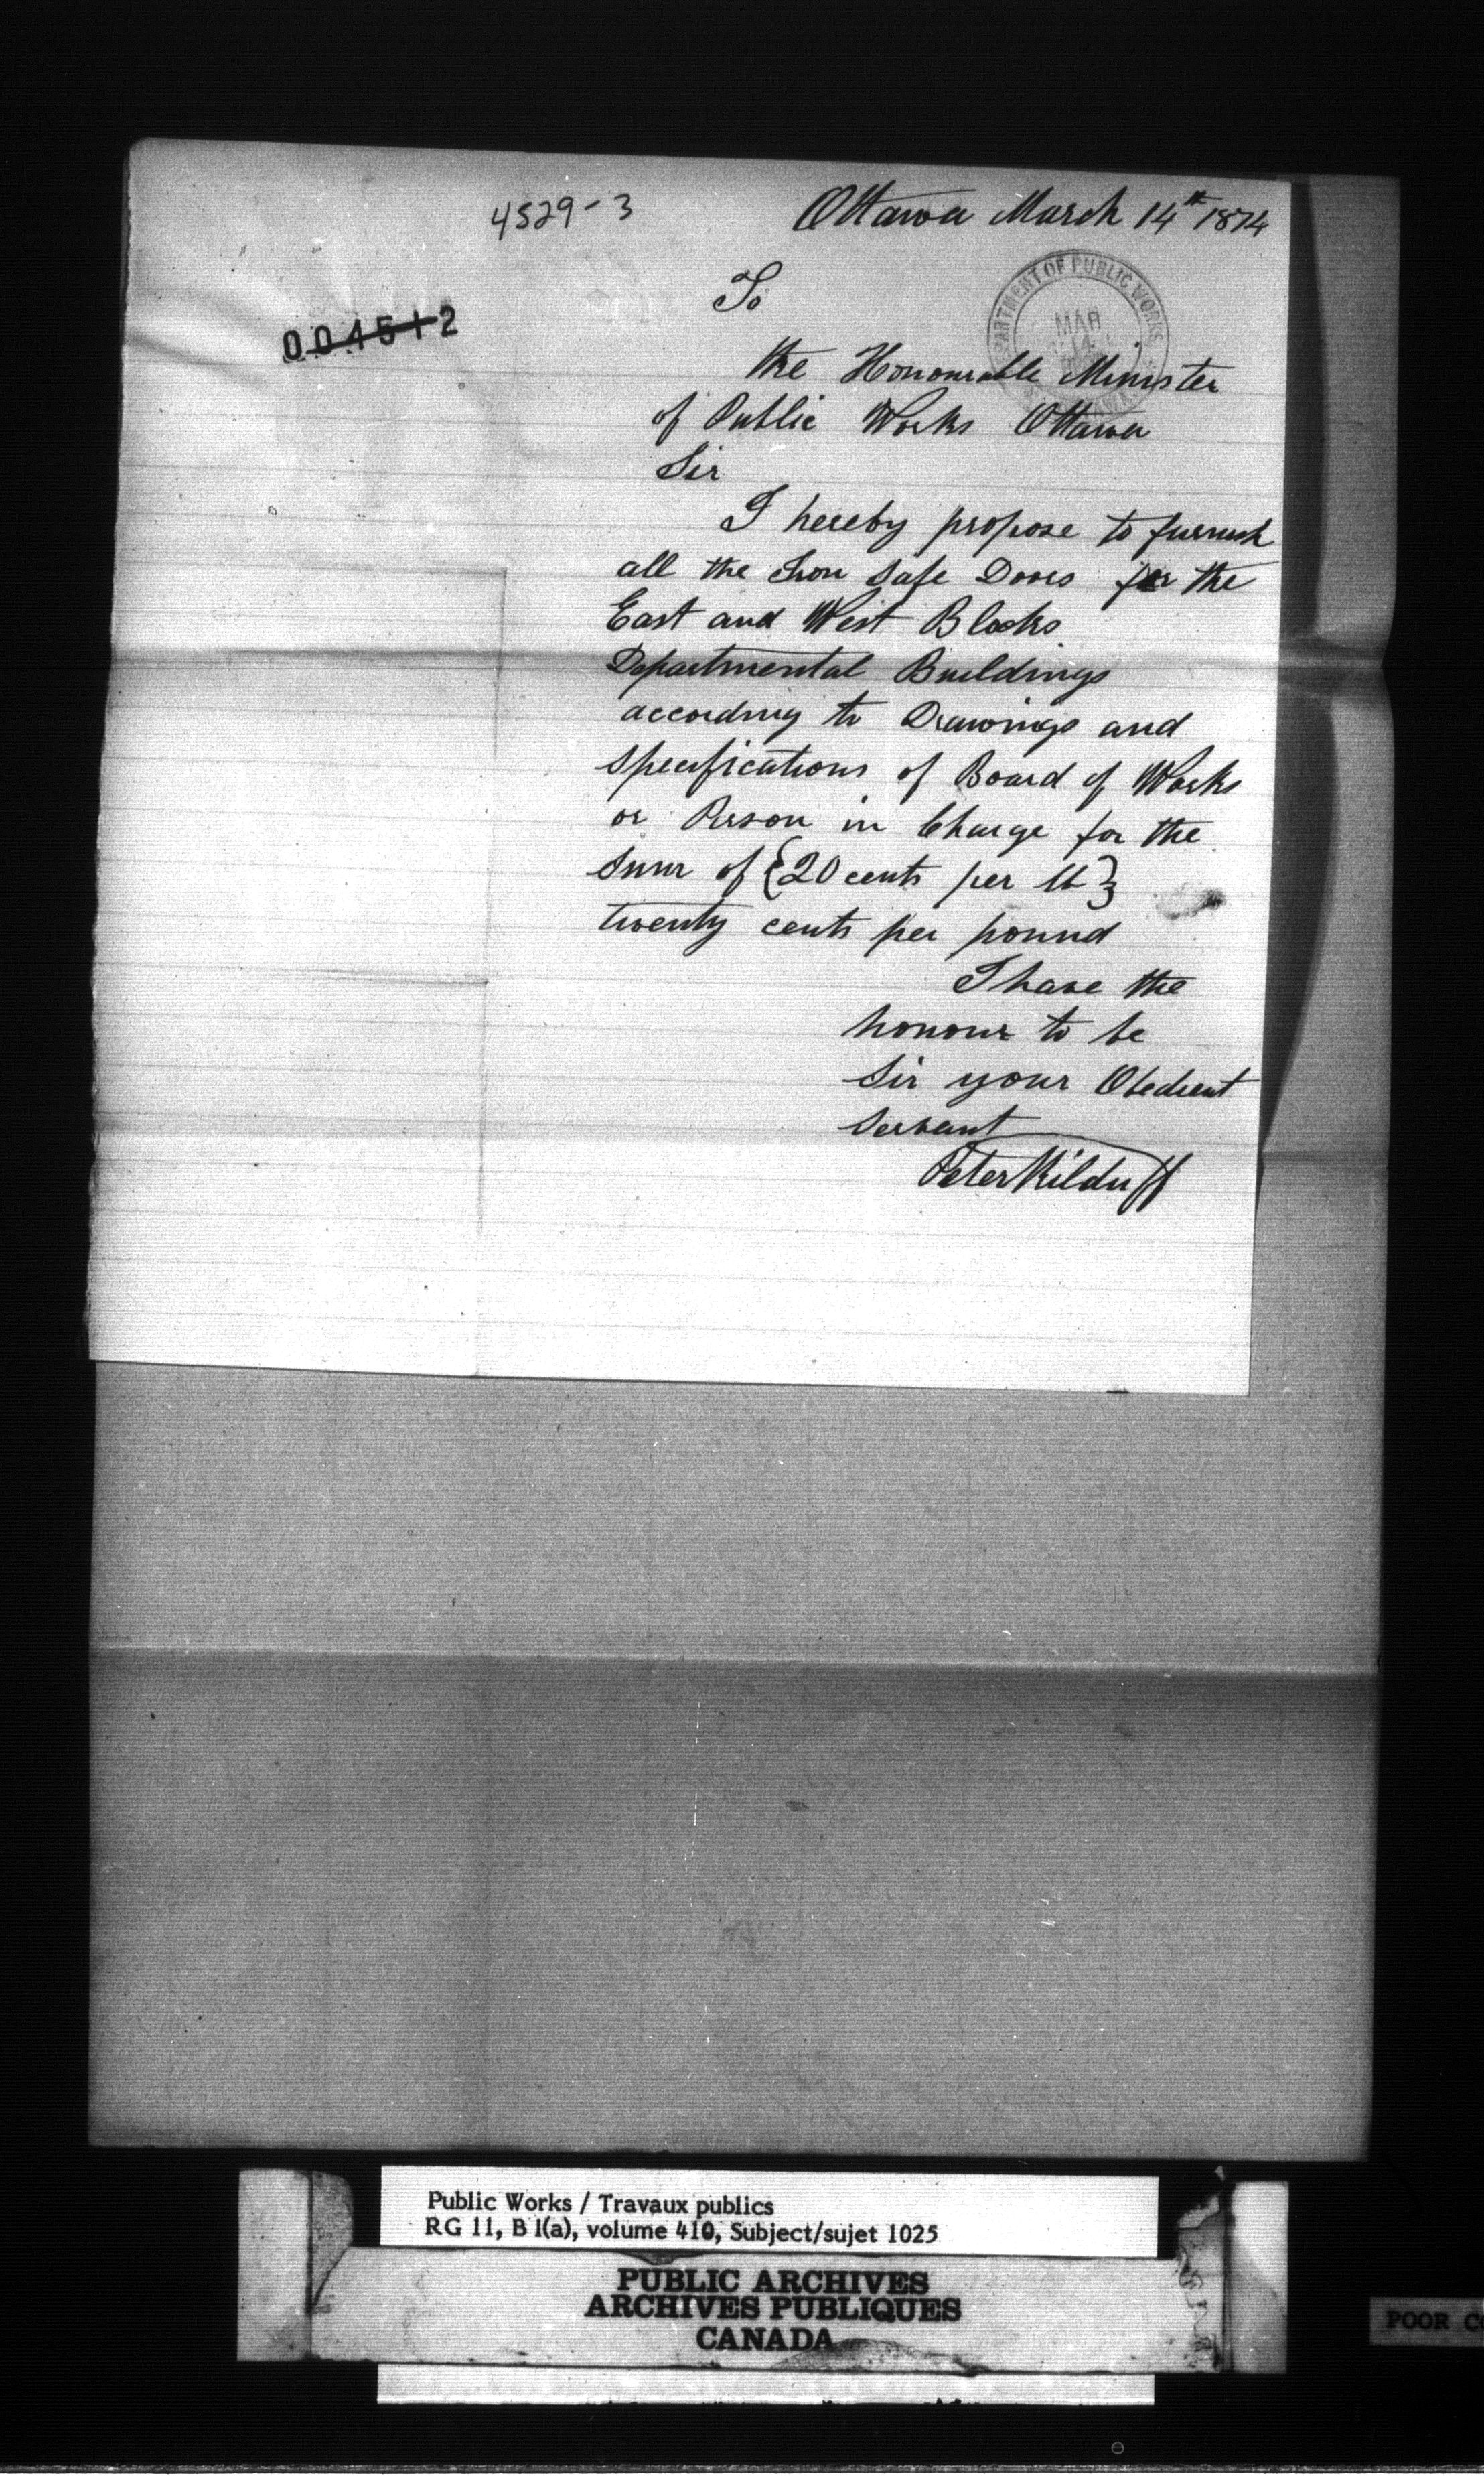 4529-3
Ottawa March 14th 1874
004512
DEPARTMENT OF PUBLIC WORKS
MAR
14
To
the Honourable Minister
of Public Works Ottawa
Sir
I hereby propose to furnish
all the Iron Safe Doors for the
East and West Blocks
Departmental Buildings
according to Drawings and
Specifications of Board of Works
or Person in Charge for the
Sum of {20 cents per lb}
twenty cents per pound
I have the
honour to be
Sir your Obedient
Servant
Peter Kilduff
Public Works / Travaux publics
RG 11, B 1(a), volume 410, Subject/sujet 1025
PUBLIC ARCHIVES
ARCHIVES PUBLIQUES
CANADA
POOR CO